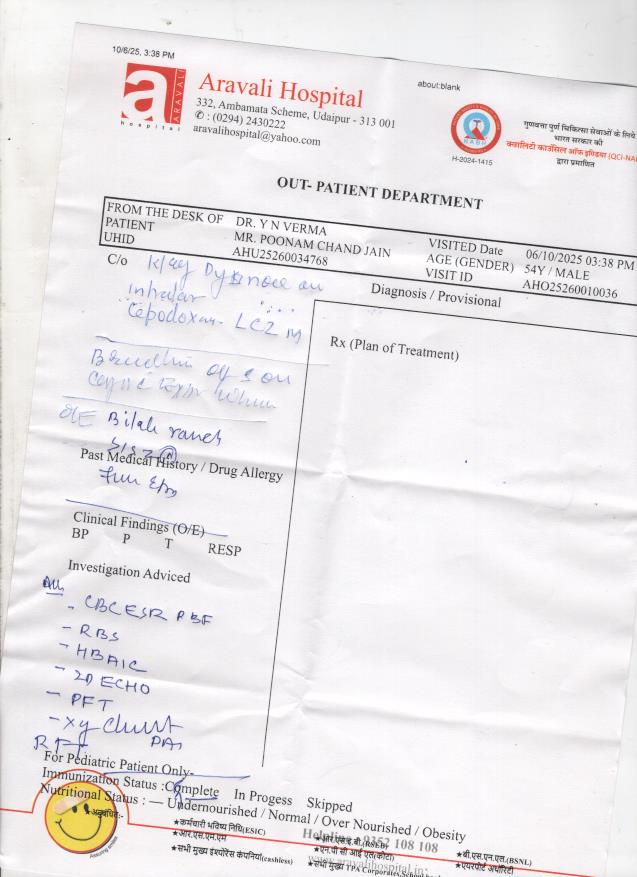 10/6/25, 3:38 PM
about:blank
a
ARAVALI
hospital
Aravali Hospital
332, Ambamata Scheme, Udaipur - 313 001
✆ : (0294) 2430222
aravalihospital@yahoo.com
NABH
H-2024-1415
गुणवत्ता पूर्ण चिकित्सा सेवाओं के लिये
भारत सरकार की
क्वालिटी काउंसिल ऑफ इण्डिया (QCI-NAB
द्वारा प्रमाणित
OUT- PATIENT DEPARTMENT
FROM THE DESK OF DR. Y N VERMA
PATIENT MR. POONAM CHAND JAIN
UHID AHU25260034768
VISITED Date 06/10/2025 03:38 PM
AGE (GENDER) 54Y / MALE
VISIT ID AHO25260010036
C/o
on
inhalar
LCZ M
on
O/E Bilat
Diagnosis / Provisional
Rx (Plan of Treatment)
Past Medical History / Drug Allergy
Clinical Findings (O/E)
BP P T RESP
Investigation Adviced
- CBC ESR PBF
- RBS
- HBA1C
- 2D ECHO
- PFT
- Xy Chest
RFT PA
For Pediatric Patient Only-
Immunization Status :Complete In Progess Skipped
Nutritional Status : — Undernourished / Normal / Over Nourished / Obesity
★अनुबंधित:-
★कर्मचारी भविष्य निधि(ESIC)
★आर.एस.एम.एम
★सभी मुख्य इंश्योरेंस कंपनियां(cashless)
Helpline : 9352 108 108
★एन.पी सी आई एल(कोटा)
www.aravalihospital.in
★सभी मुख्य TPA Corporates,School
★बी.एस.एन.एल.(BSNL)
★एयरपोर्ट अथॉरिटी